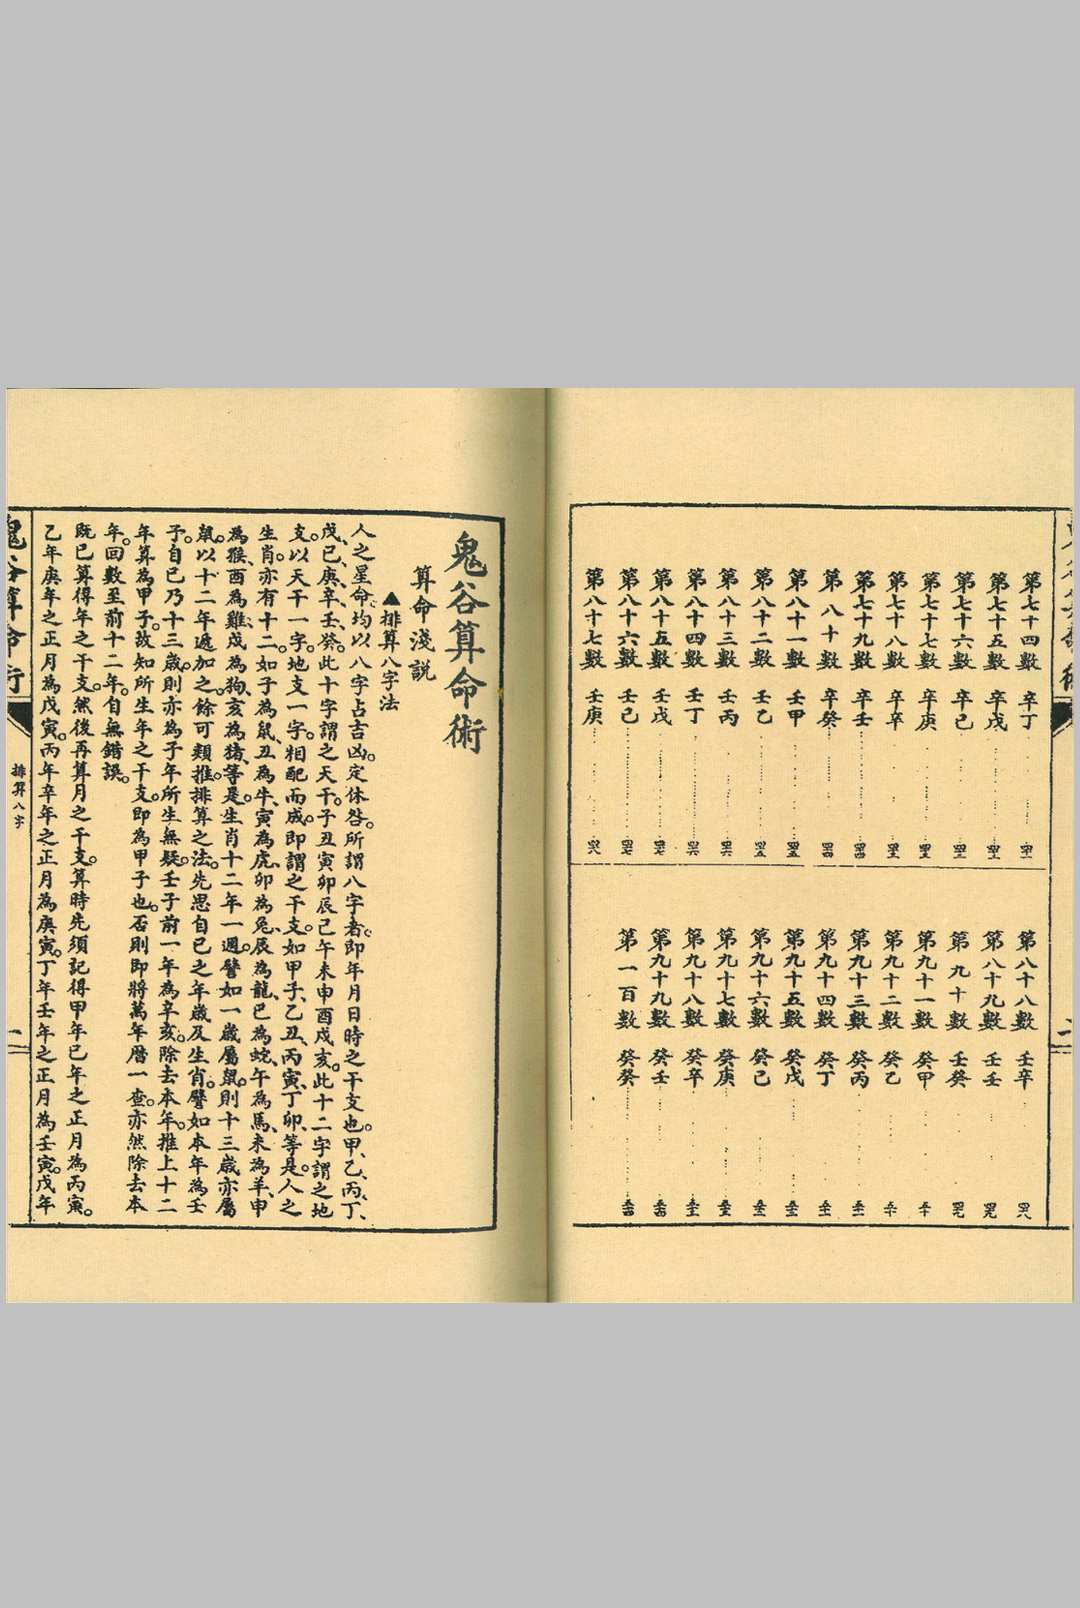 第七十四數 辛丁
第七十五數 辛戊
第七十六數 辛己
第七十七數 辛庚
第七十八數 辛辛
第七十九數 辛壬
第八十數 辛癸
第八十一數 壬甲
第八十二數 壬乙
第八十三數 壬丙
第八十四數 壬丁
第八十五數 壬戊
第八十六數 壬己
第八十七數 壬庚
第八十八數 壬辛
第八十九數 壬壬
第九十數 壬癸
第九十一數 癸甲
第九十二數 癸乙
第九十三數 癸丙
第九十四數 癸丁
第九十五數 癸戊
第九十六數 癸己
第九十七數 癸庚
第九十八數 癸辛
第九十九數 癸壬
第一百數 癸癸
鬼谷算命術
算命淺説
▲排算八字法
人之星命。均以八字占吉凶。定休咎。所謂八字者。即年月日時之干支也。甲、乙、丙、丁、
戊、己、庚、辛、壬、癸。此十字謂之天干。子丑寅卯辰巳午未申酉戌亥。此十二字謂之地
支。以天干一字。地支一字。相配而成。即謂之干支。如甲子、乙丑、丙寅、丁卯、等是。人之
生肖。亦有十二。如子為鼠、丑為牛、寅為虎、卯為兔、辰為龍、巳為蛇、午為馬、未為羊、申
為猴、酉為雞、戌為狗、亥為猪、等是。生肖十二年一週。譬如一歲屬鼠。則十三歲亦屬
鼠。以十二年遞加之。餘可類推。排算之法。先思自己之年歲及生肖。譬如本年為壬
子。自己乃十三歲。則亦為子年所生無疑。壬子前一年為辛亥。除去本年。推上十二
年算為甲子。故知所生年之干支。即為甲子也。否則即將萬年曆一查。亦然除去本
年。回數至前十二年。自無錯誤。
既已算得年之干支。然後再算月之干支。算時先須記得甲年己年之正月為丙寅。
乙年庚年之正月為戊寅。丙年辛年之正月為庚寅。丁年壬年之正月為壬寅。戊年
鬼谷算命術 排算八字 一